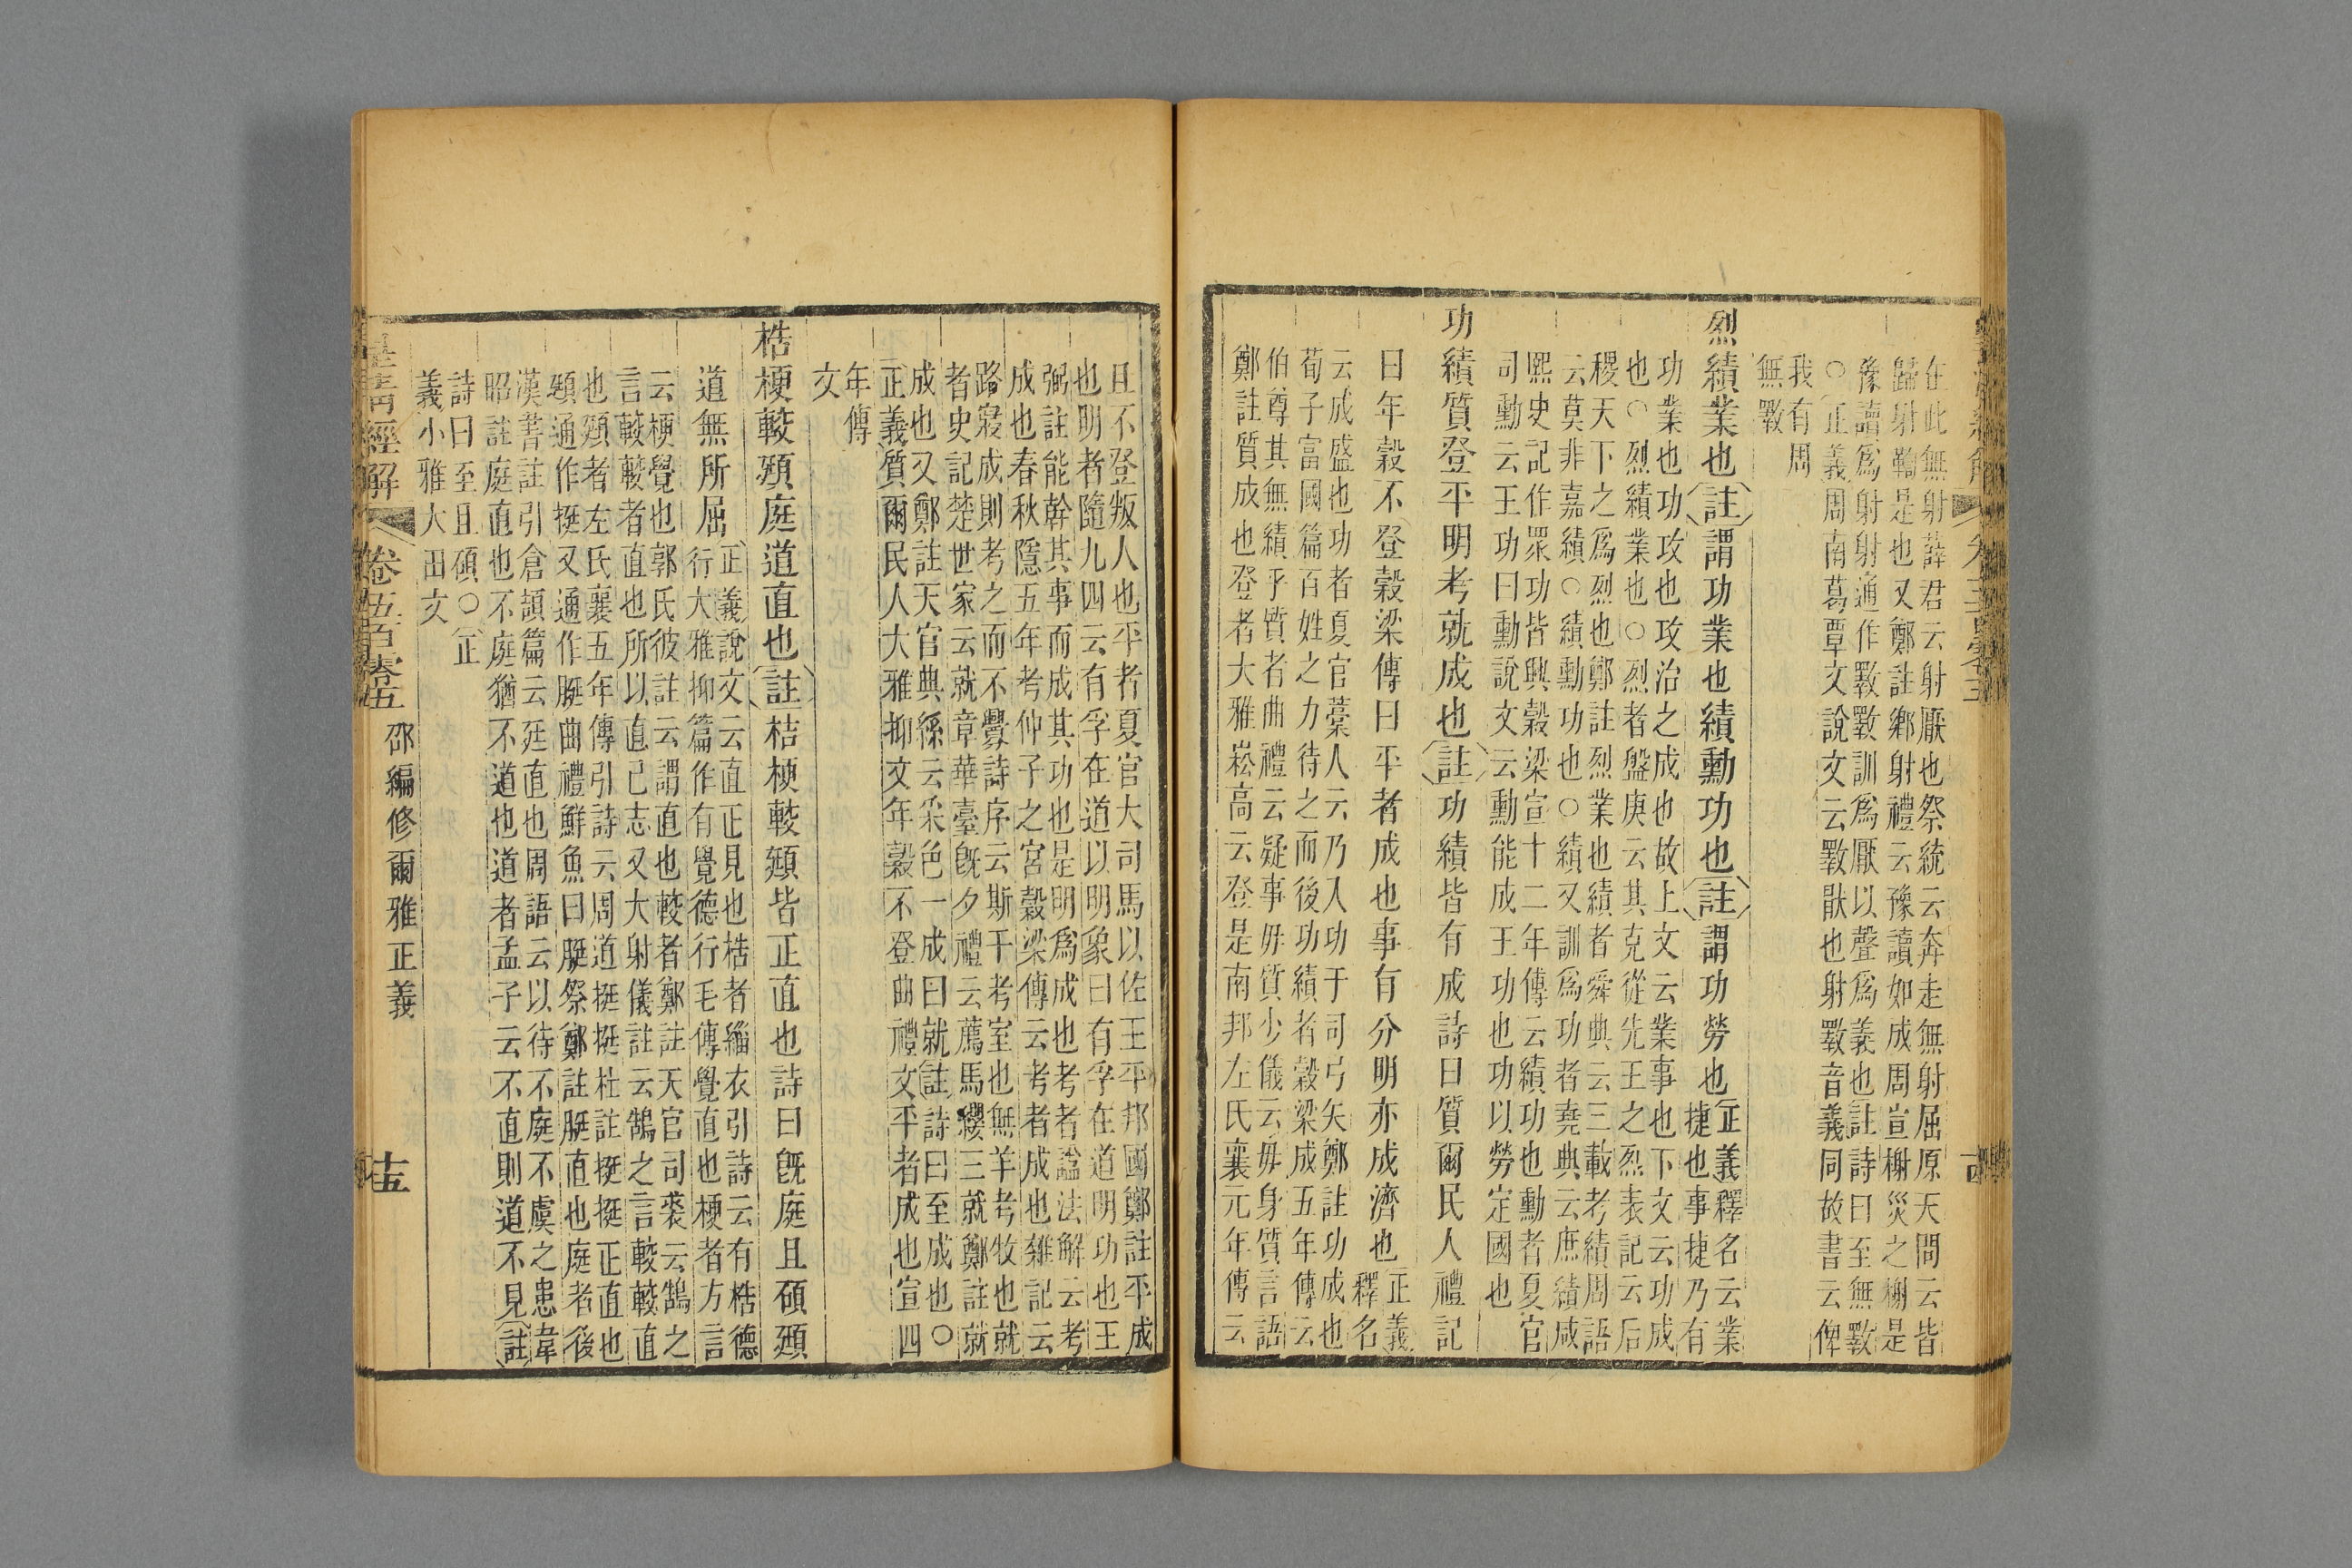 在此無射薛君云射厭也祭統云奔走無射屈原天問云皆
歸射鞫是也又鄭註鄉射禮云豫讀如成周宣榭災之榭是
豫讀爲射射通作斁斁訓爲厭以聲爲義也註詩曰至無斁
○正義周南葛覃文說文云斁猒也射斁音義同故書云俾
我有周
無斁
烈績業也註謂功業也績勳功也註謂功勞也
正義釋名云業
捷也事捷乃有
功業也功攻也攻治之成也故上文云業事也下文云功成
也○烈績業也○烈者盤庚云其克從先王之烈表記云后
稷天下之爲烈也鄭註烈業也績者舜典云三載考績周語
云莫非嘉績○績勳功也○績又訓爲功者堯典云庶績咸
熙史記作眾功皆興榖梁宣十二年傳云績功也勳者夏官
司勳云王功曰勳說文云勳能成王功也功以勞定國也
功績質登平明考就成也註功績皆有成詩曰質爾民人禮記
曰年榖不登榖梁傳曰平者成也事有分明亦成濟也
正義
釋名
云成盛也功者夏官藁人云乃入功于司弓矢鄭註功成也
荀子富國篇百姓之力待之而後功績者榖梁成五年傳云
伯尊其無績乎質者曲禮云疑事毋質少儀云毋身質言語
鄭註質成也登者大雅崧高云登是南邦左氏襄元年傳云
且不登叛人也平者夏官大司馬以佐王平邦國鄭註平成
也明者隨九四云有孚在道以明象曰有孚在道明功也王
弼註能幹其事而成其功也是明爲成也考者謚法解云考
成也春秋隱五年考仲子之宮榖梁傳云考者成也雜記云
路寢成則考之而不釁詩序云斯干考室也無羊考牧也就
者史記楚世家云就章華臺旣夕禮云薦馬纓三就鄭註就
成也又鄭註天官典絲云采色一成曰就註詩曰至成也○
正義質爾民人大雅抑文年榖不登曲禮文平者成也宣四
年傳
文
梏梗較頲庭道直也註梏梗較頲皆正直也詩曰旣庭且碩頲
道無所屈
正義說文云直正見也梏者緇衣引詩云有梏德
行大雅抑篇作有覺德行毛傳覺直也梗者方言
云梗覺也郭氏彼註云謂直也較者鄭註天官司裘云鵠之
言較較者直也所以直己志又大射儀註云鵠之言較較直
也頲者左氏襄五年傳引詩云周道挺挺杜註挺挺正直也
頲通作挺又通作脡曲禮鮮魚曰脡祭鄭註脡直也庭者後
漢書註引倉頡篇云廷直也周語云以待不庭不虞之患韋
昭註庭直也不庭猶不道也道者孟子云不直則道不見註
詩曰至且碩○正
義小雅大田文
皇清經解
卷五百零五
邵編修爾雅正義
十五